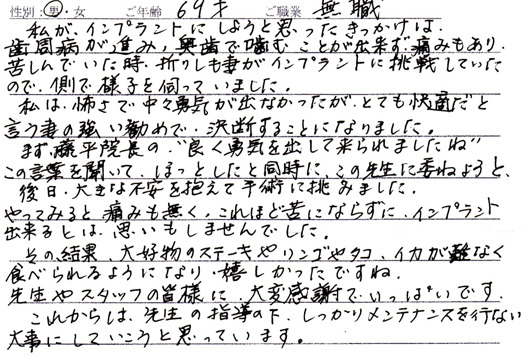 性別：男・女　ご年齢　69才　ご職業　無職
私が、インプラントにしようと思ったきっかけは、
歯周病が進み、奥歯で噛むことが出来ず、痛みもあり、
苦しんでいた時、折りしも妻がインプラントに挑戦していた
ので、側で様子を伺っていました。
私は、怖さで中々勇気が出なかったが、とても快適だと
言う妻の強い勧めで、決断することになりました。
まず、藤平院長の、“良く勇気を出して来られましたね”
この言葉を聞いて、ほっとしたと同時に、この先生に委ねようと、
後日、大きな不安を抱えて手術に挑みました。
やってみると、痛みも無く、これほど苦にならずに、インプラント
出来るとは、思いもしませんでした。
その結果、大好物のステーキやリンゴやタコ、イカが難なく
食べられるようになり、嬉しかったですね。
先生やスタッフの皆様に、大変感謝でいっぱいです。
これからは、先生の指導の下、しっかりメンテナンスを行ない
大事にしていこうと思っています。